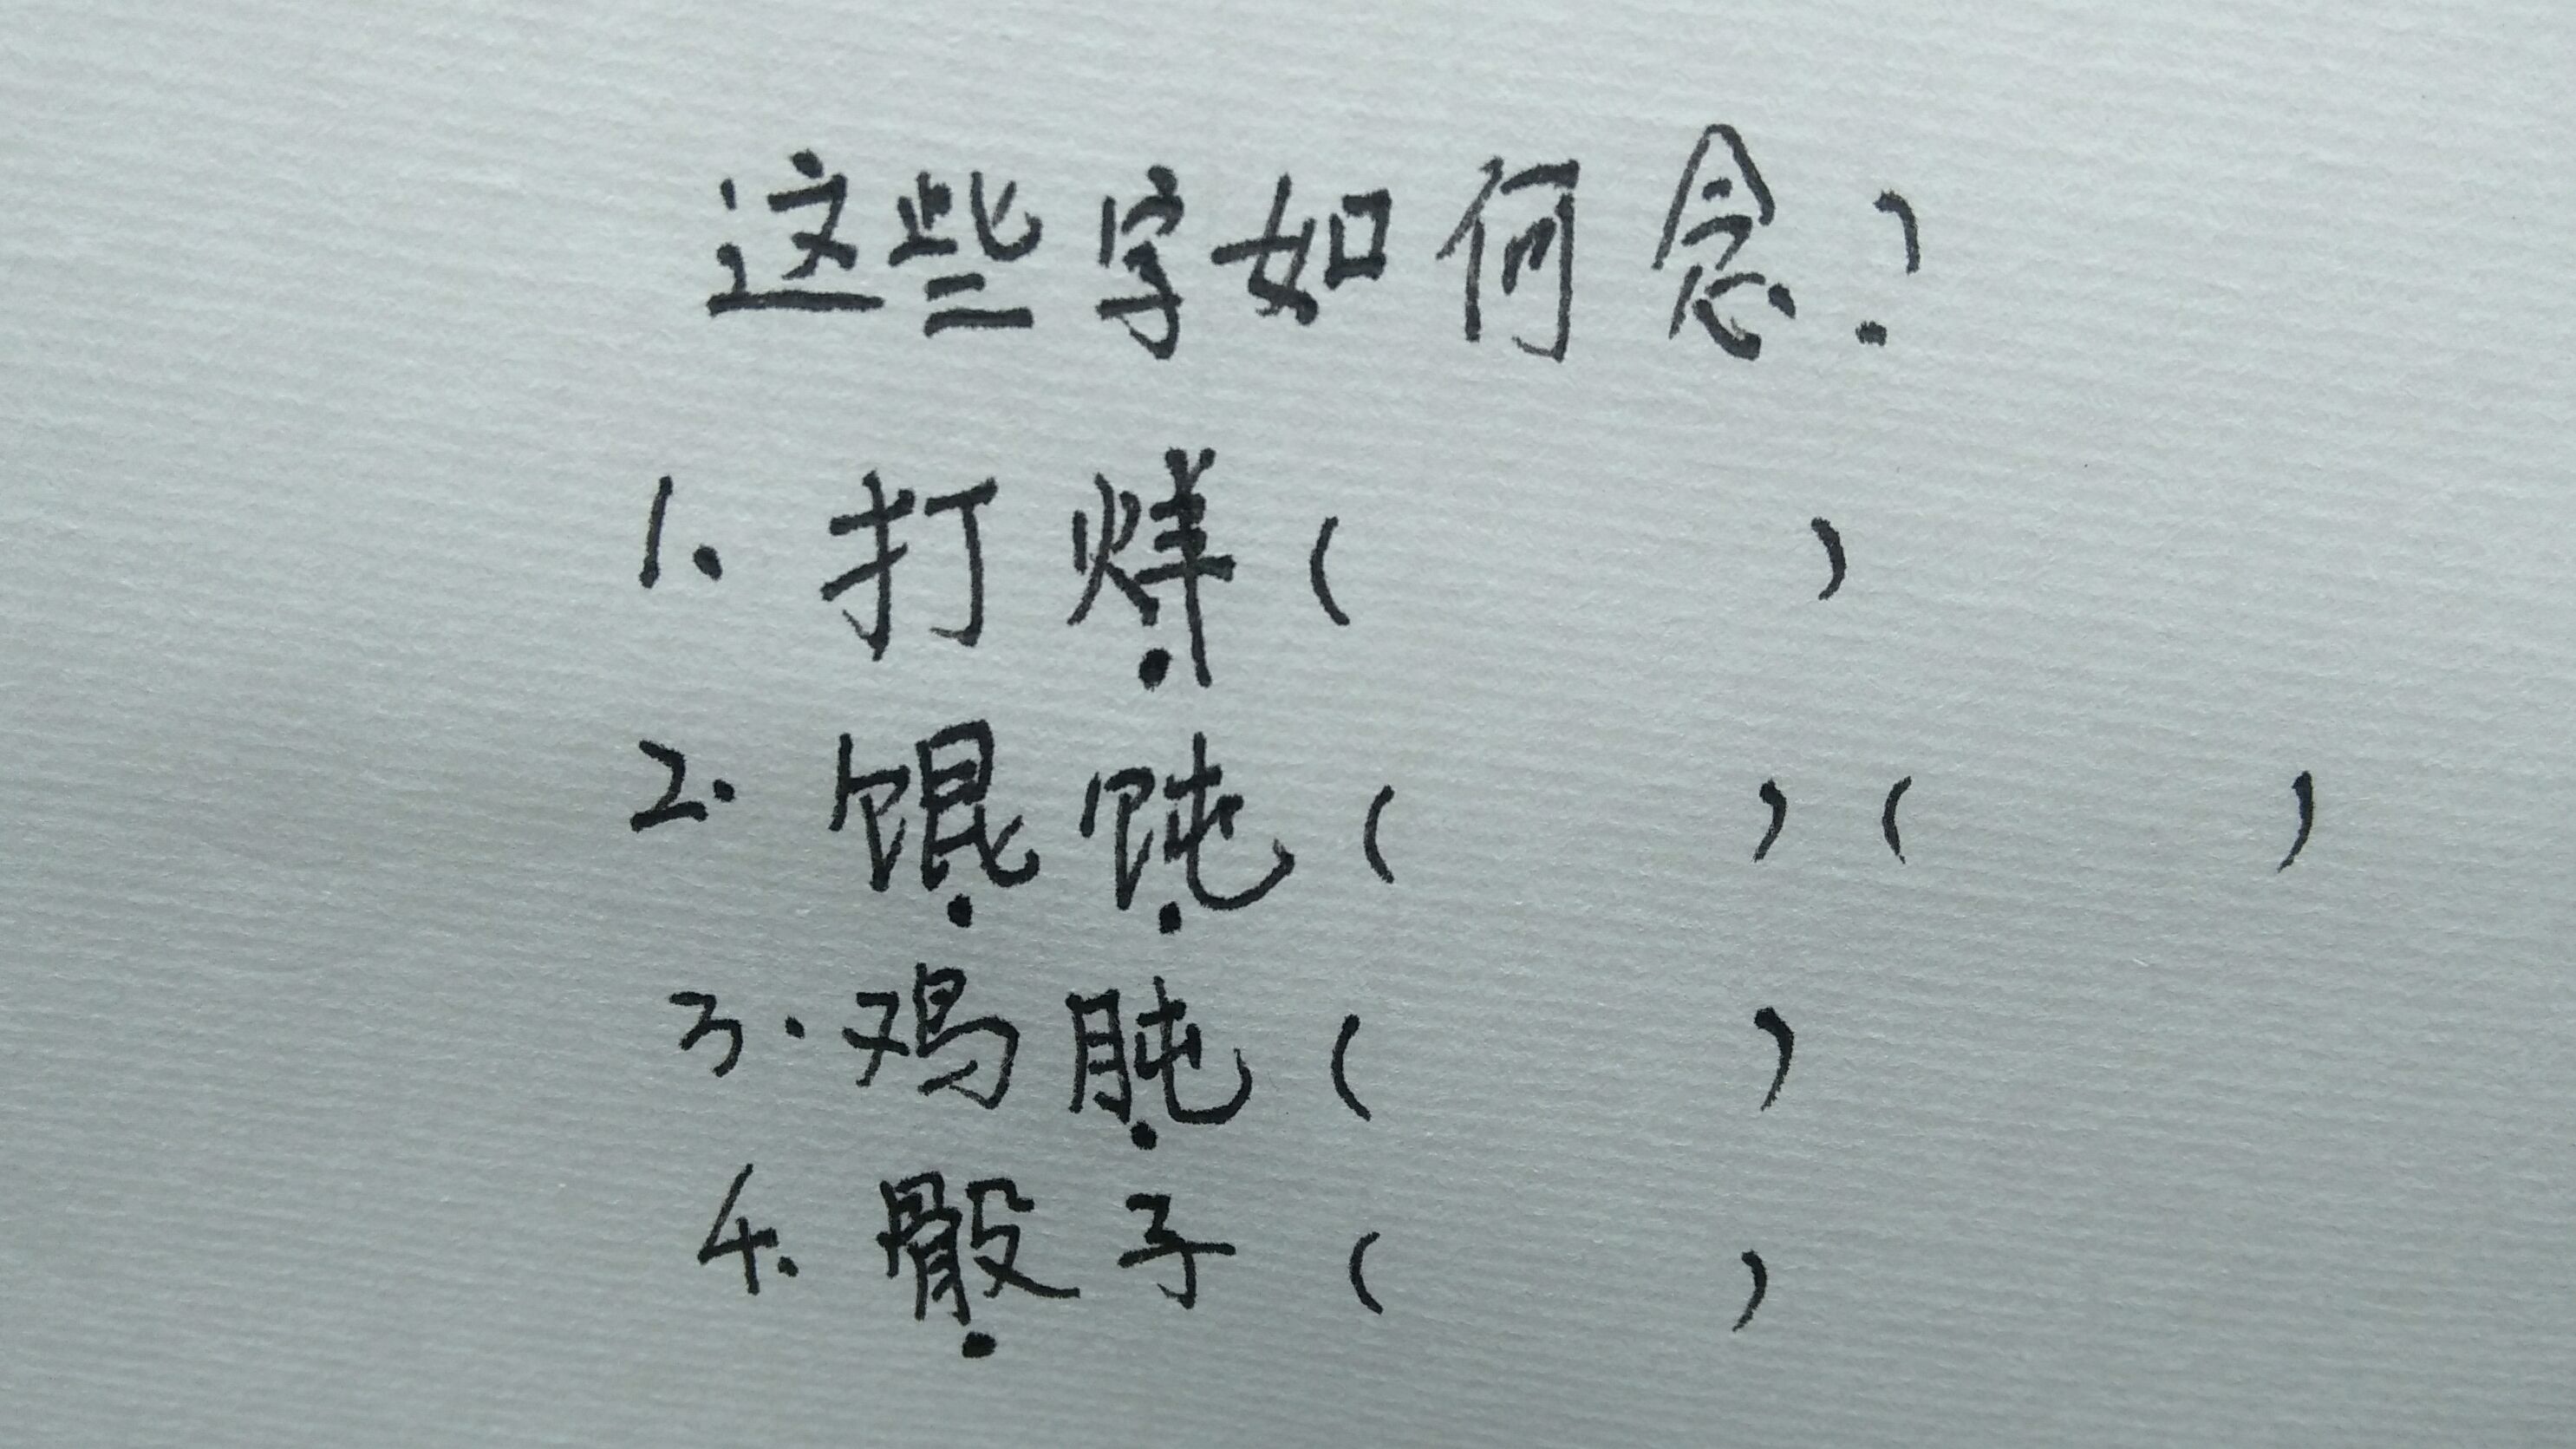 这些字如何念?
1. 打烊( )
2. 馄饨( )( )
3. 鸡肫( )
4. 骰子( )